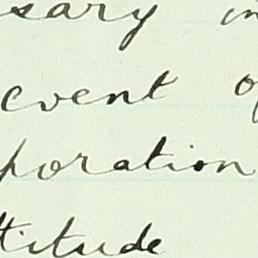 ssary in
event of
poration
titude